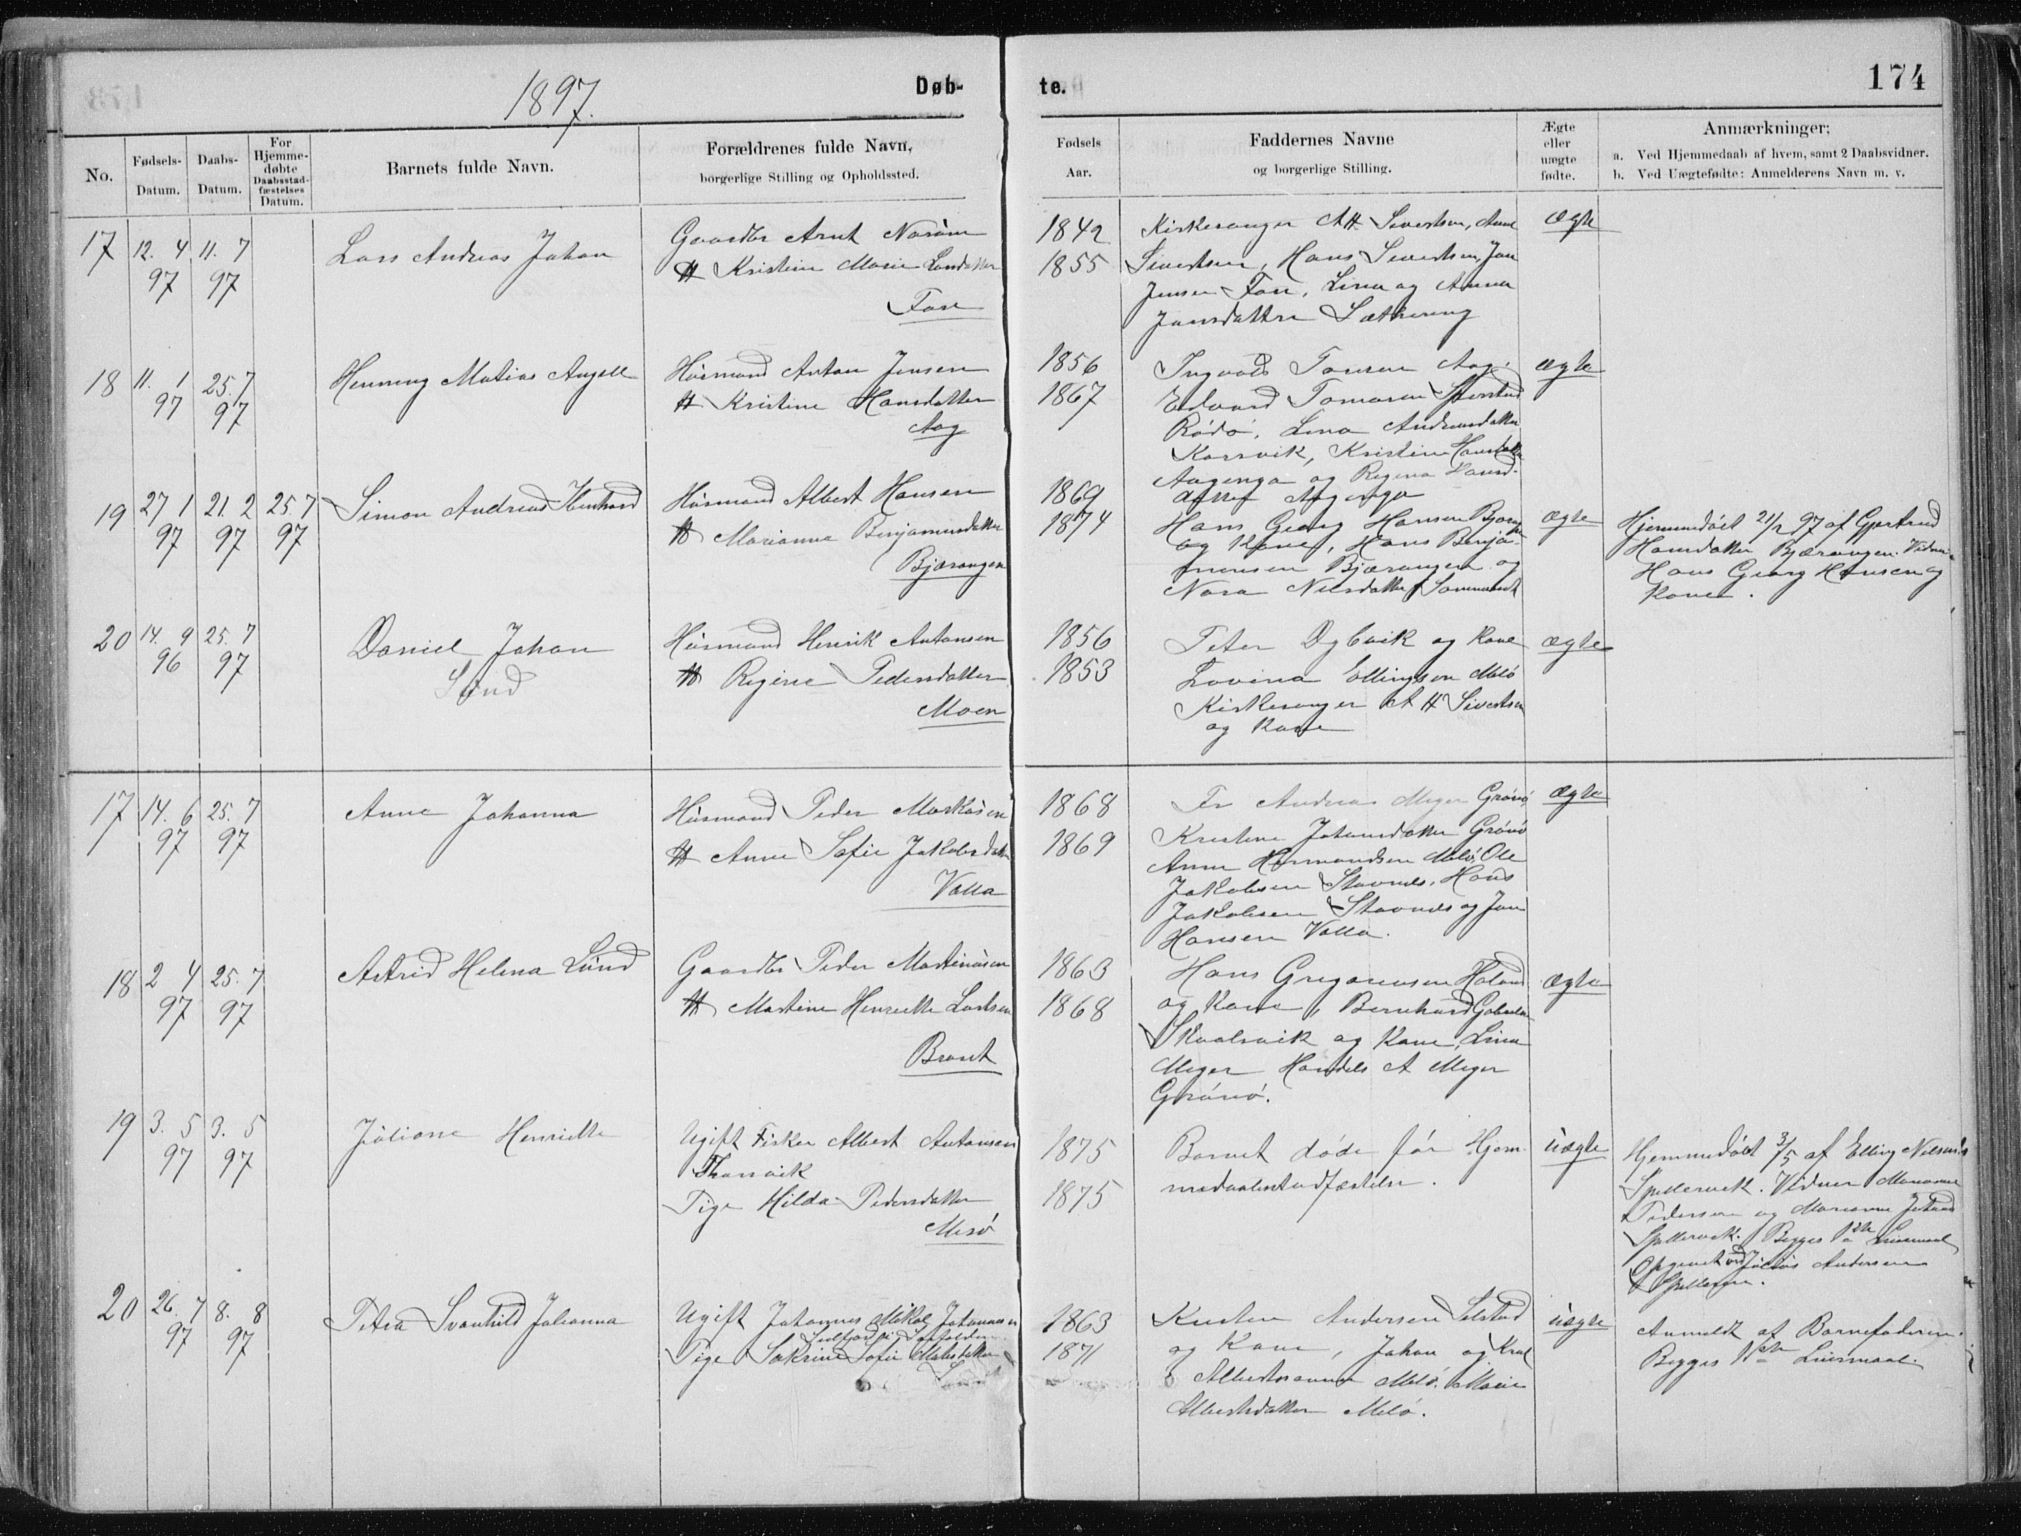 1897.
Døb-
te.
174
No.
Fødsels-
Datum.
Daabs-
Datum.
For
Hjemme-
døbte
Daabsstad-
fæstelses
Datum.
Barnets fulde Navn.
Forældrenes fulde Navn,
borgerlige Stilling og Opholdssted.
Fødsels
Aar.
Faddernes Navne
og borgerlige Stilling.
Ægte
eller
uægte
fødte.
Anmærkninger;
a. Ved Hjemmedaab af hvem, samt 2 Daabsvidner.
b. Ved Uægtefødte: Anmelderens Navn m. v.
17
12. 4
97
11. 7
97
Lars Andreas Johan
Gaardbr Arnt
H Kristine Marie
Fore
1842
1855
Kirkesanger A H Sivertsen, Anne
Sivertsen, Hans Sivertsen, Jon
Jensen Fore, Lina og Anna
Jonsdattre
ægte
18
11. 1
97
25. 7
97
Henning Matias Angell
Husmand Anton Jensen
H Kristine Hansdatter
Aag
1856
1867
Ingvald Tomsen Aag
Edvard Tomasen
Rødø, Lina Andreasdatter
Korsvik, Kristine Hansdatter
Aagenga og Regina Hansd-
datter Aagenga
ægte
19
27 1
97
21. 2
97
25. 7
97
Simon Andreas
Husmand Albert Hansen
H Marianne Benjaminsdatter
Bjærangen
1869
1874
Hans Georg Hansen
og Kone, Hans Benja-
minsen Bjærangen og
Nora Nilsdatter
ægte
Hjemmedøbt 21/2 97 af Gjertrud
Hansdatter Bjærangen. Vidner
Hans Georg Hansen og
Kone.
20
14. 9
96
25. 7
97
Daniel Johan
Lund
Husmand Henrik Antonsen
H Regine Pedersdatter
Moen
1856
1853
Peter Dybvik og Kone
Lovina Ellingsen Melø
Kirkesanger A H Sivertsen
og Kone
ægte
17
14. 6
97
25. 7
97
Anne Johanna
Husmand Peder Markusen
H Anne Sofie Jakobsdatter
Valla
1868
1869
Fr Andreas Meyer Grønø
Kristine Johansdatter Grønø
Anne Hermandsen Melø, Ole
Jakobsen Stavnes, Hans
Jakobsen Stavnes og Jon
Hansen Valla.
ægte
18
2 4
97
25. 7
97
Astrid Helena Lund
Gaardbr Peder Martinusen
H Martine Henriette
Bront
1863
1868
Hans Gregoriusen
og Kone, Bernhard
og Kone, Lina
Meyer Handels A Meyer
Grønø.
ægte
19
3. 5
97
3. 5
97
Juliane Henriette
Ugift Fisker Albert Antonsen
Pige Hilda Pedersdatter
Mesø
1875
1875
Barnet døde før Hjem-
medaabsstadfæstelse.
uægte
Hjemmedøbt 3/5 af Elling Nilsen
Spildervik. Vidner Marianne
Pedersen og Marianne
Spildervik. Begges 1ste Leiermaal
Opgivet ved Julius Andersen
20
26. 7
97
8. 8
97
Petra Svanhild Johanna
Ugift Johannes Mikal Johannesen
Pige Sakrine Sofie
1863
1871
Kristen Andersen
og Kone, Johan og
Melø. Marie
Albertsdatter Melø.
uægte
Anmeldt af Barnefaderen.
Begges 1ste Leiermaal.